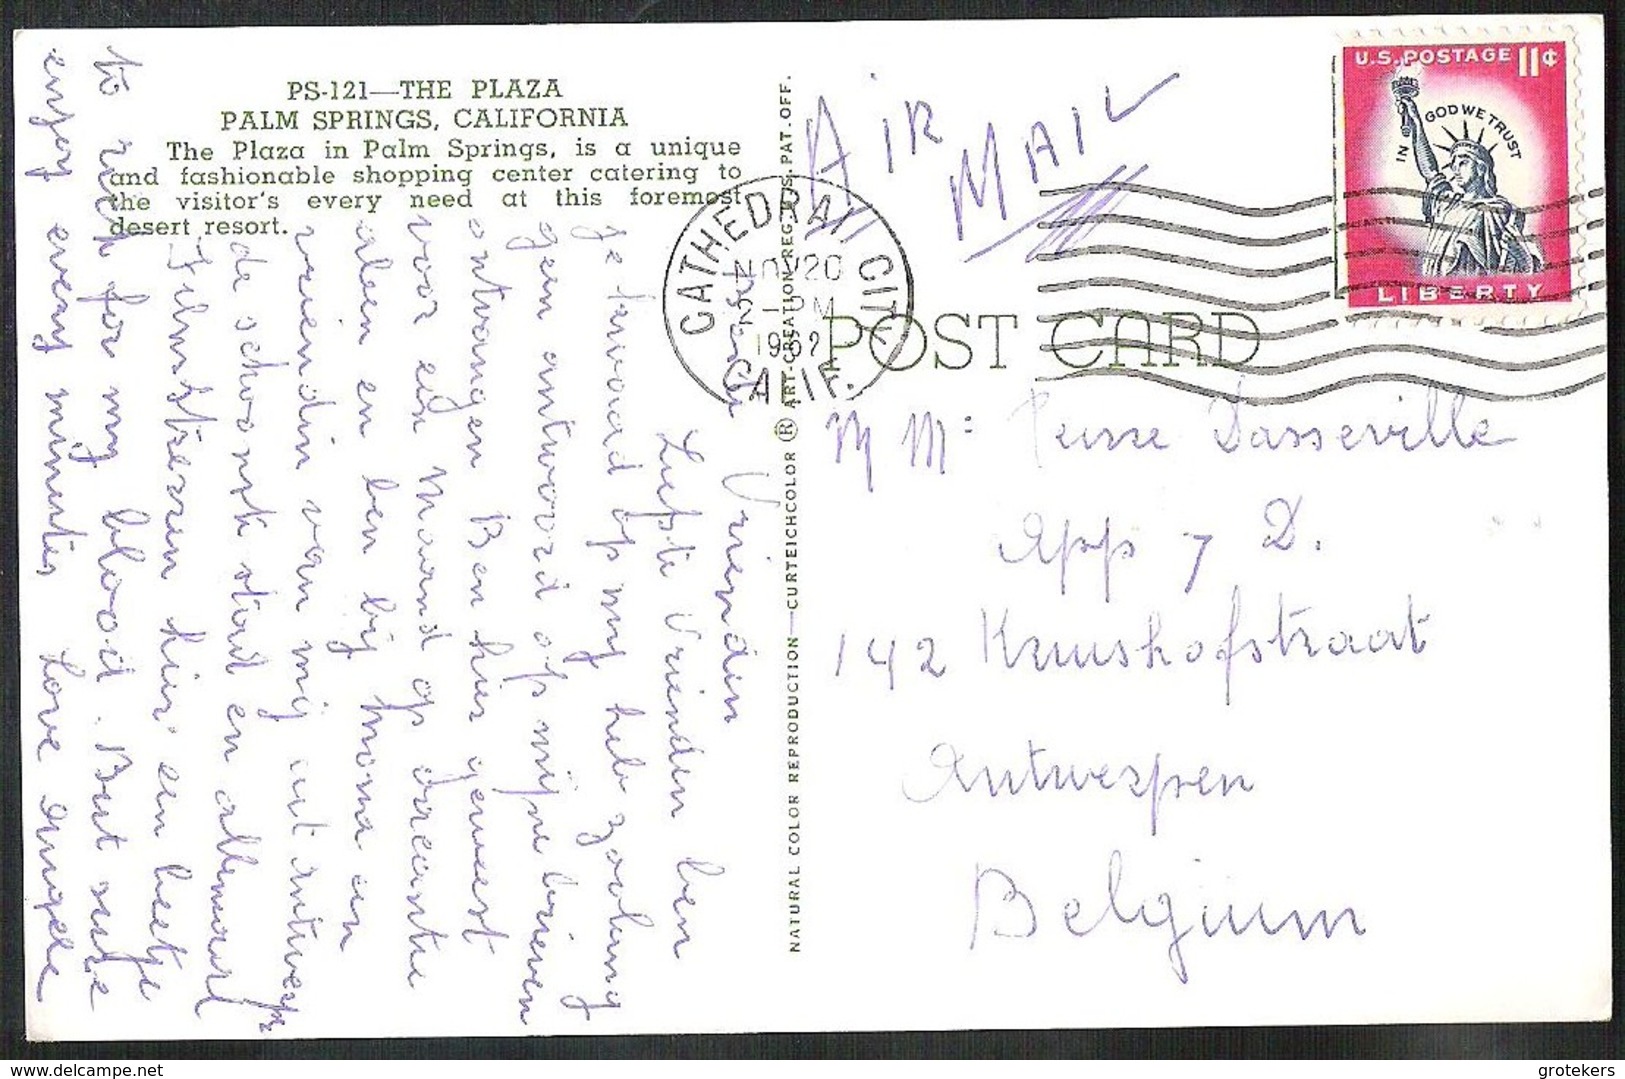 PS-121—THE PLAZA
PALM SPRINGS, CALIFORNIA
The Plaza in Palm Springs, is a unique
and fashionable shopping center catering to
the visitor's every need at this foremost
desert resort.
NATURAL COLOR REPRODUCTION—CURTEICHCOLOR ® ART-CREATION REG. U.S. PAT. OFF.
AIR
MAIL
U.S. POSTAGE 11¢
IN GOD WE TRUST
LIBERTY
CATHEDRAL CITY
NOV 20
1 PM
1962
CALIF.
POST CARD
M M: Dasseville
App 7 D.
142 Kruishofstraat
Antwerpen
Belgium
Vriendin
Liefste Vrienden ben
je kwaad op my heb zoolang
geen antwoord op mijne brieven
ontvangen Ben hier geweest
voor een Maand op vacantie
alleen en ben bij Mona een
vriendin van mij uit Antwerp
de schoonste stad en allemaal
Filmsterren hier een beetje
to rich for my blood. But sure
enjoy every minute Love